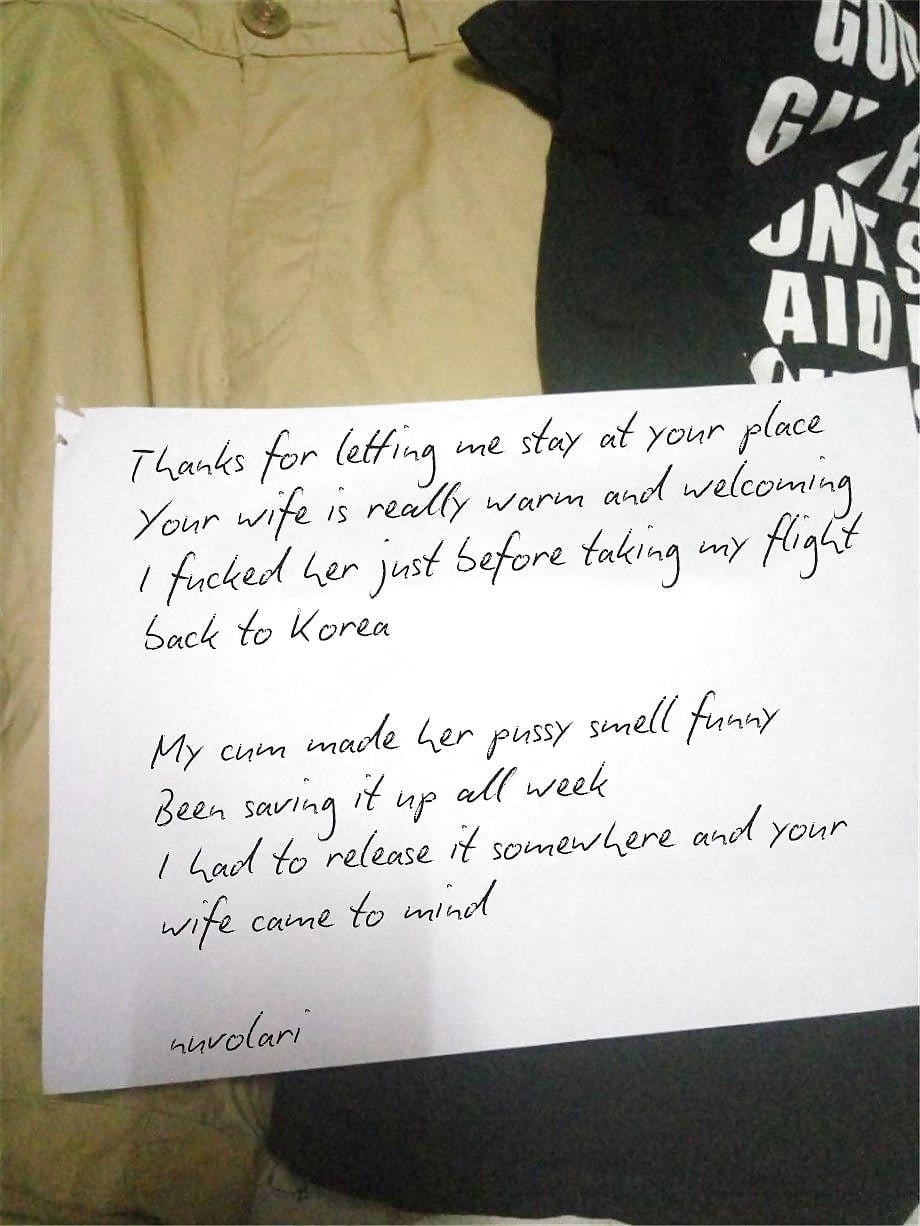 GO
GIVE
ONE S
AID
Thanks for letting me stay at your place
Your wife is really warm and welcoming
I fucked her just before taking my flight
back to Korea
My cum made her pussy smell funny
Been saving it up all week
I had to release it somewhere and your
wife came to mind
nuvolari